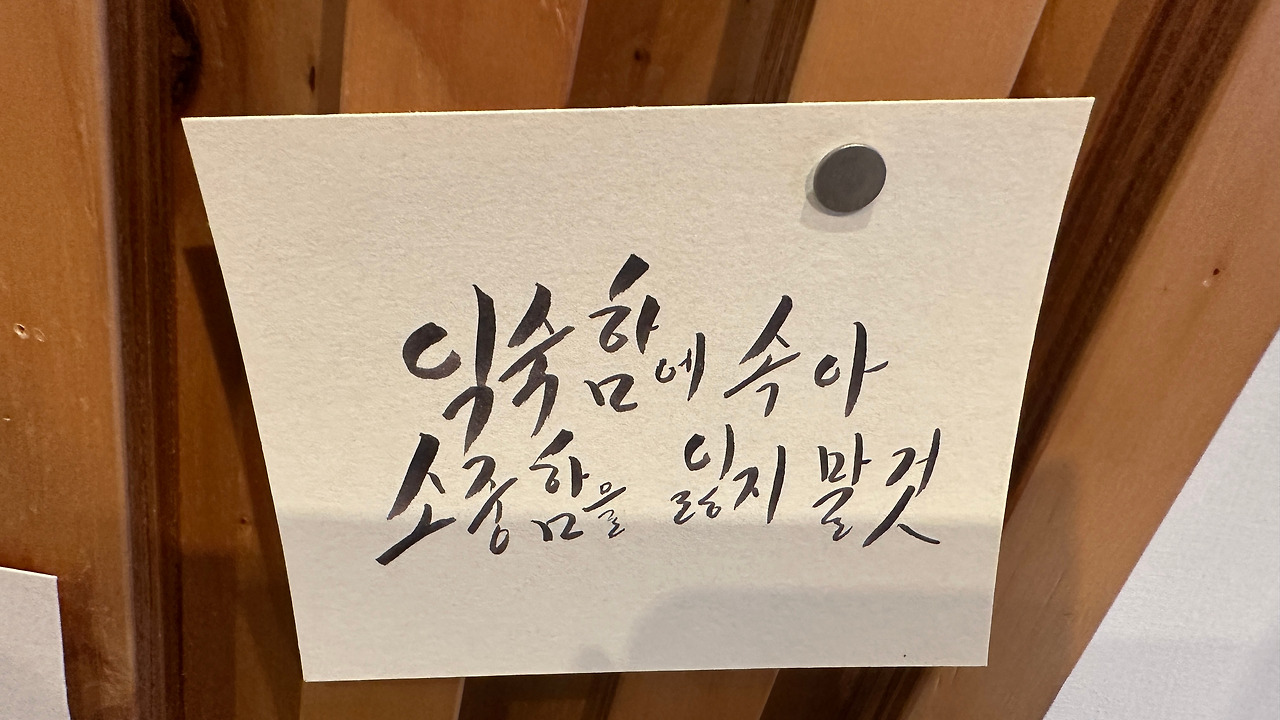 익숙함에 속아
소중함을 잃지 말것